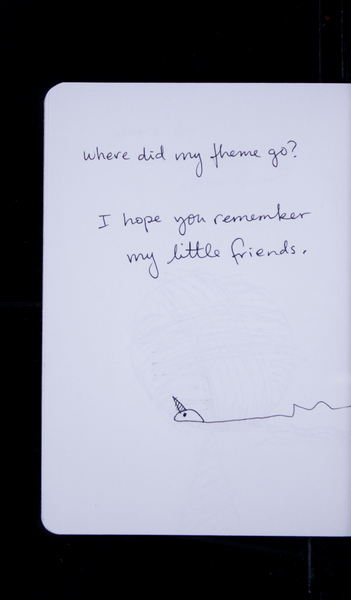 where did my theme go?
I hope you rememker
my little friends.